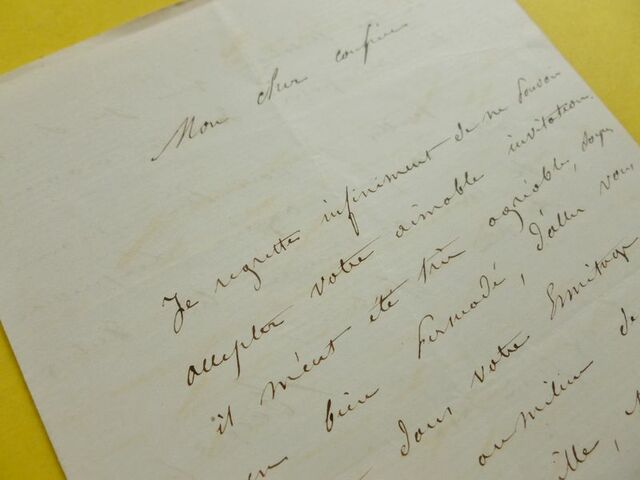 Mon cher confrère
Je regrette infiniment de ne pouvoir
accepter votre aimable invitation.
il m'eut été très agréable, soyez
en bien persuadé, d'aller vous
dans votre Ermitage
au milieu de